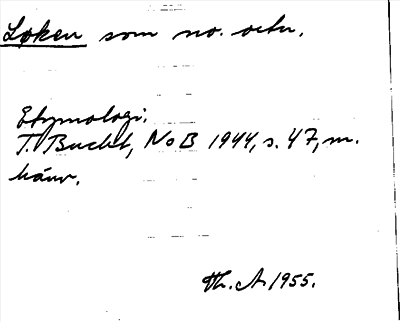 Loken som no. ortn.
Etymologi.
T. Bucht, NoB 1944, s. 47, m.
hänv.
Th. A. 1955.